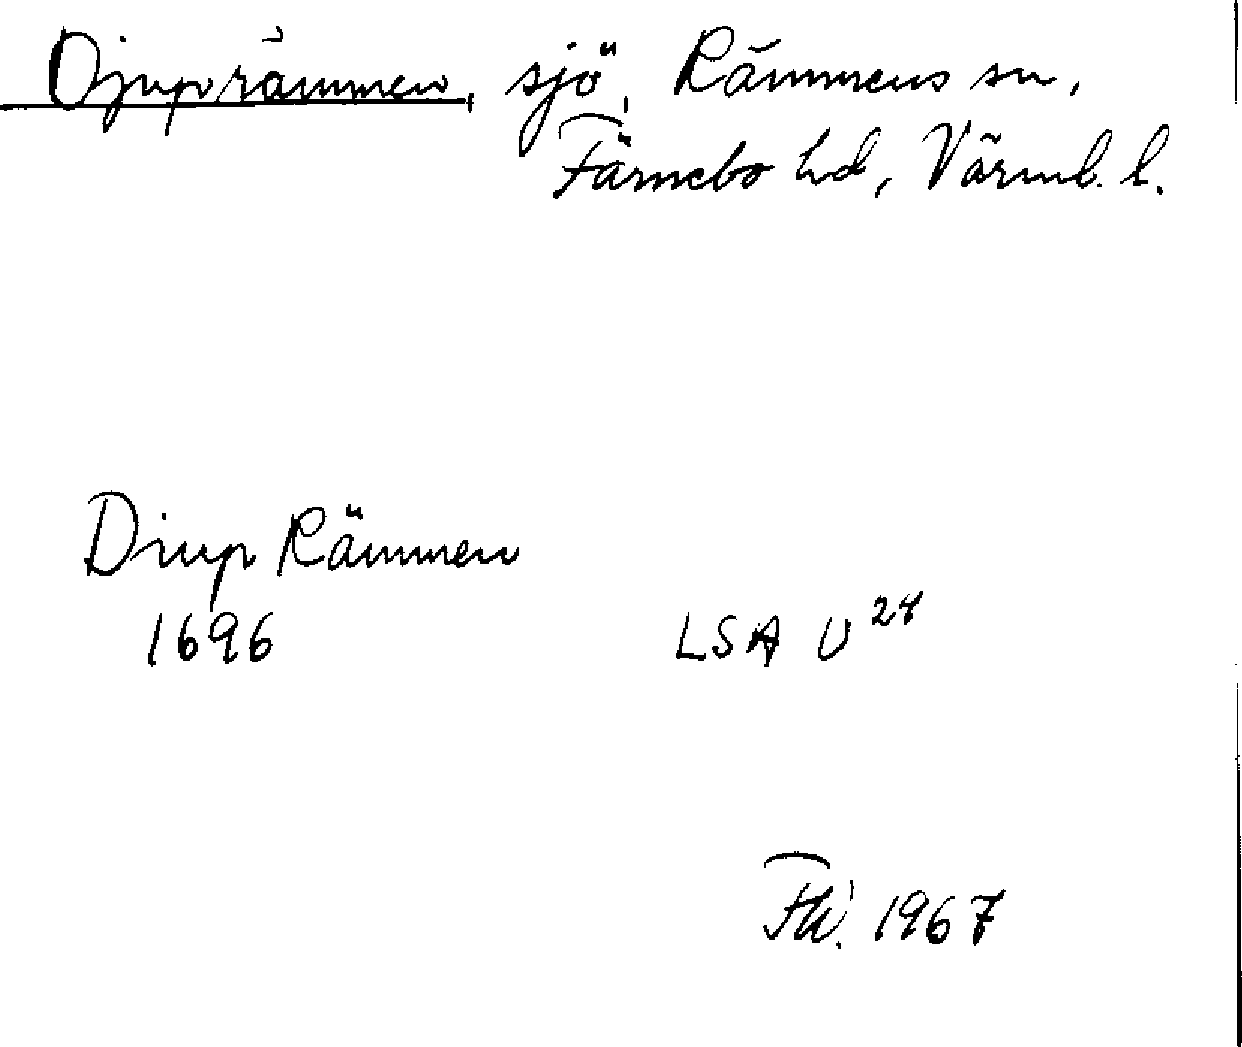 Djuprämmen, sjö, Rämmens sn,
Färnebo hd, Värml. l.
Diup Rämmen
1696 LSA U 24
1967